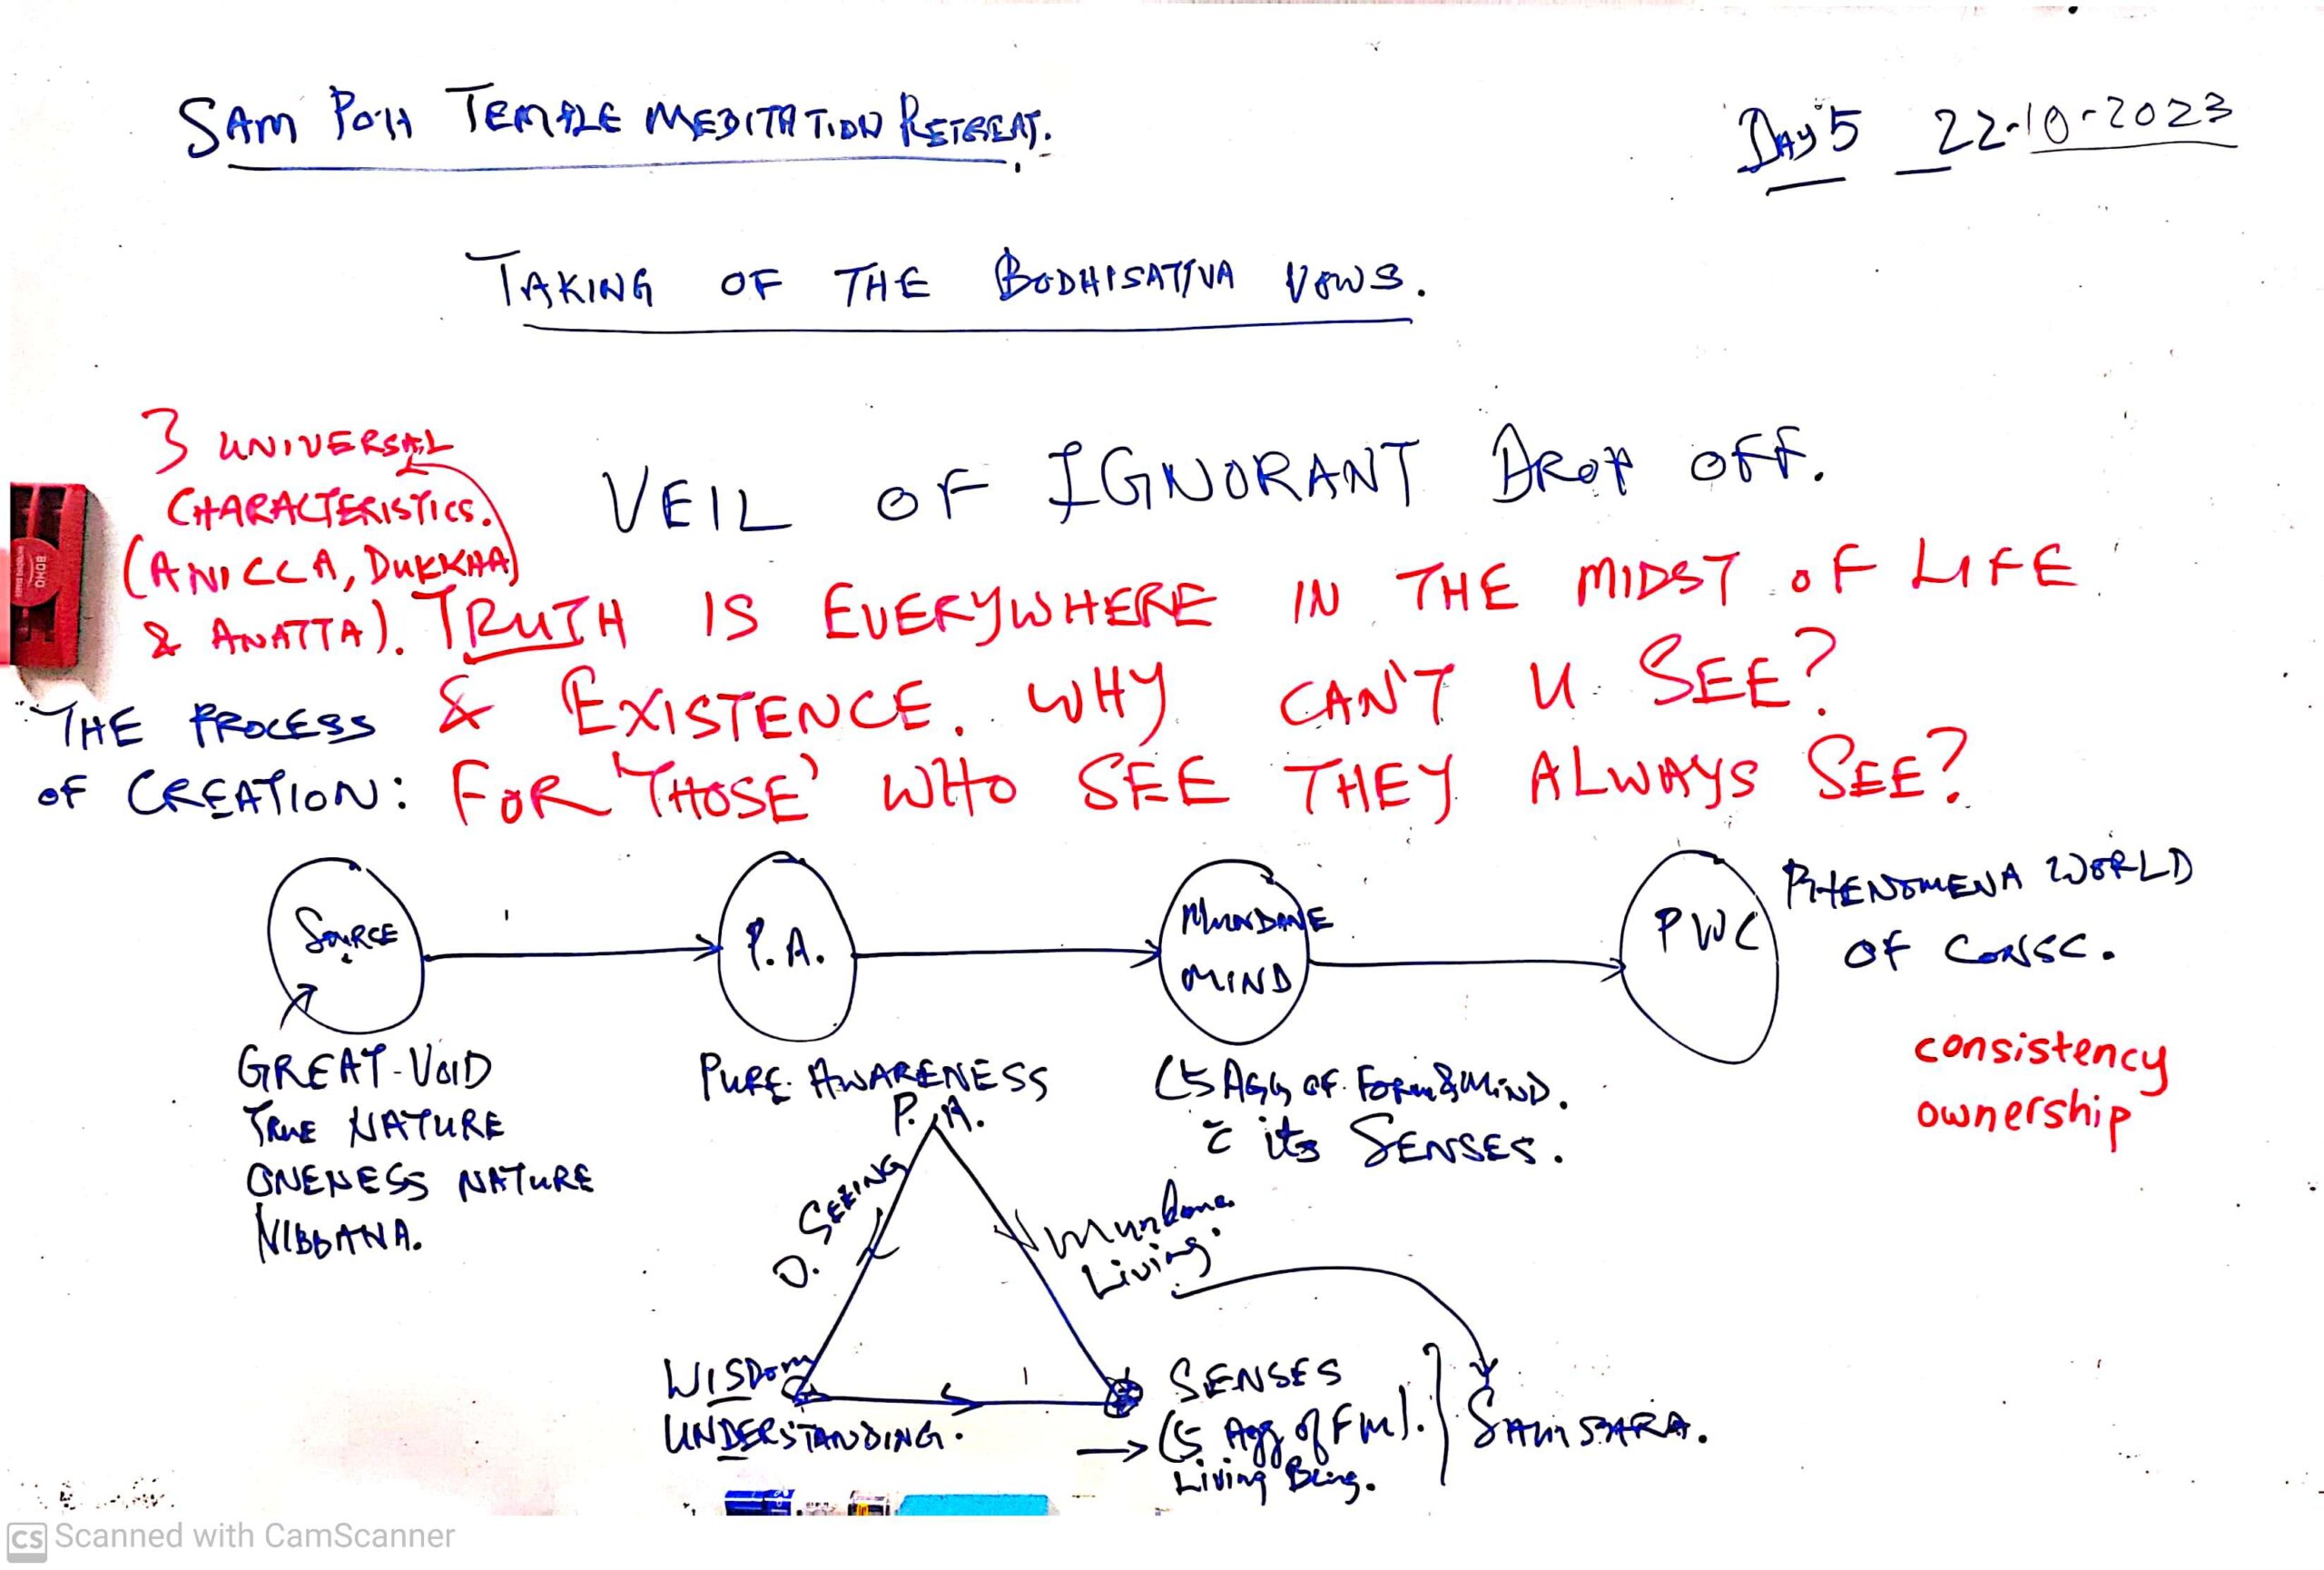 SAM POH TEMPLE MEDITATION RETREAT.
DAY 5 22-10-2023
TAKING OF THE BODHISATTVA VOWS.
3 UNIVERSAL
CHARACTERISTICS.
(ANICCA, DUKKHA)
& ANATTA).
VEIL OF IGNORANT DROP OFF.
TRUTH IS EVERYWHERE IN THE MIDST OF LIFE
& EXISTENCE. WHY CAN'T U SEE?
FOR 'THOSE' WHO SEE THEY ALWAYS SEE?
THE PROCESS
OF CREATION:
SOURCE
P.A.
MUNDANE
MIND
PWC
PHENOMENA WORLD
OF CONSC.
GREAT-VOID
TRUE NATURE
ONENESS NATURE
NIBBANA.
PURE AWARENESS
(5 AGG OF FORM & MIND.
c̄ its SENSES.
consistency
ownership
P.A.
D. SEEING
Mundane
Living.
WISDOM
UNDERSTANDING.
SENSES
→ (5 Agg of FM).
Living Being.
SAMSARA.
BOHO
CS Scanned with CamScanner